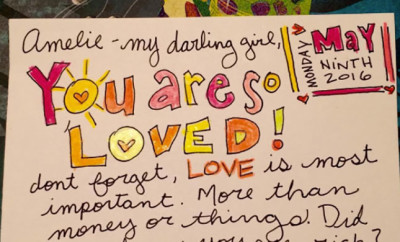 Amelie - my darling girl,
MONDAY
MAY
NINTH
2016
You are so
LOVED!
dont forget, LOVE is most
important. More than
money or things. Did
you are rich?